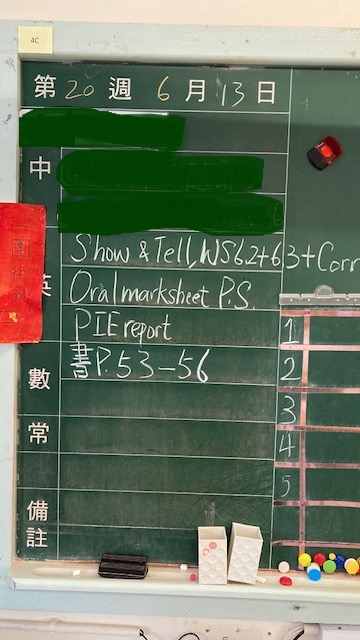 4C
第 20 週 6 月 13 日
中
英 Show & Tell, WS 6.2+6.3+Corr
Oral marksheet P.S.
PIE report
數 書P.53-56
常
備註
1
2
3
4
5